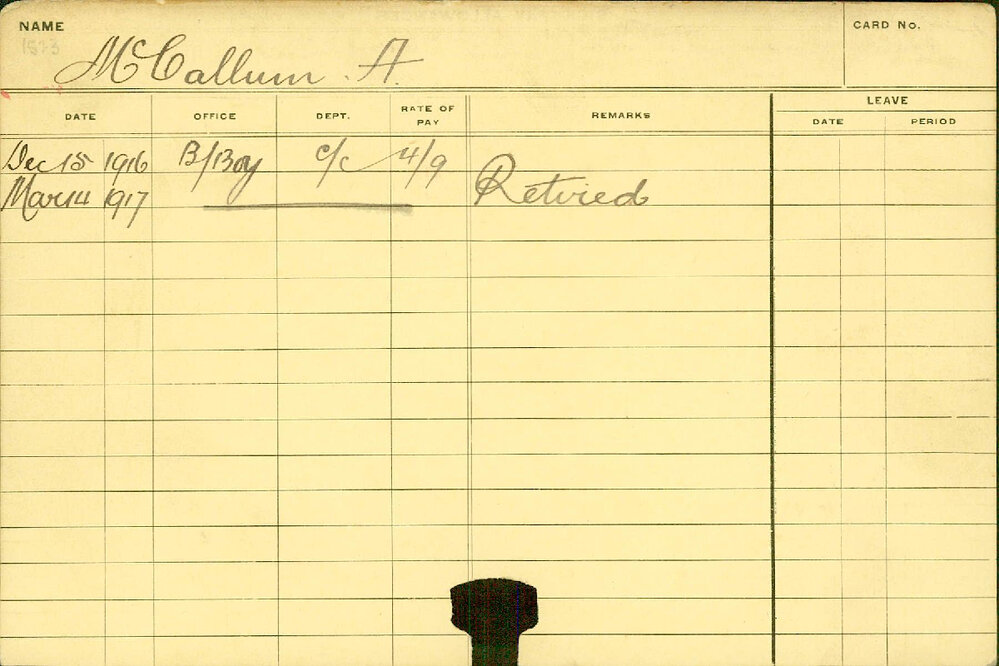 NAME
CARD No.
1523
McCallum A.
DATE OFFICE DEPT. RATE OF PAY REMARKS LEAVE
DATE PERIOD
Dec 15 1916 B/Boy c/c 4/9
Mar 14 1917 Retired